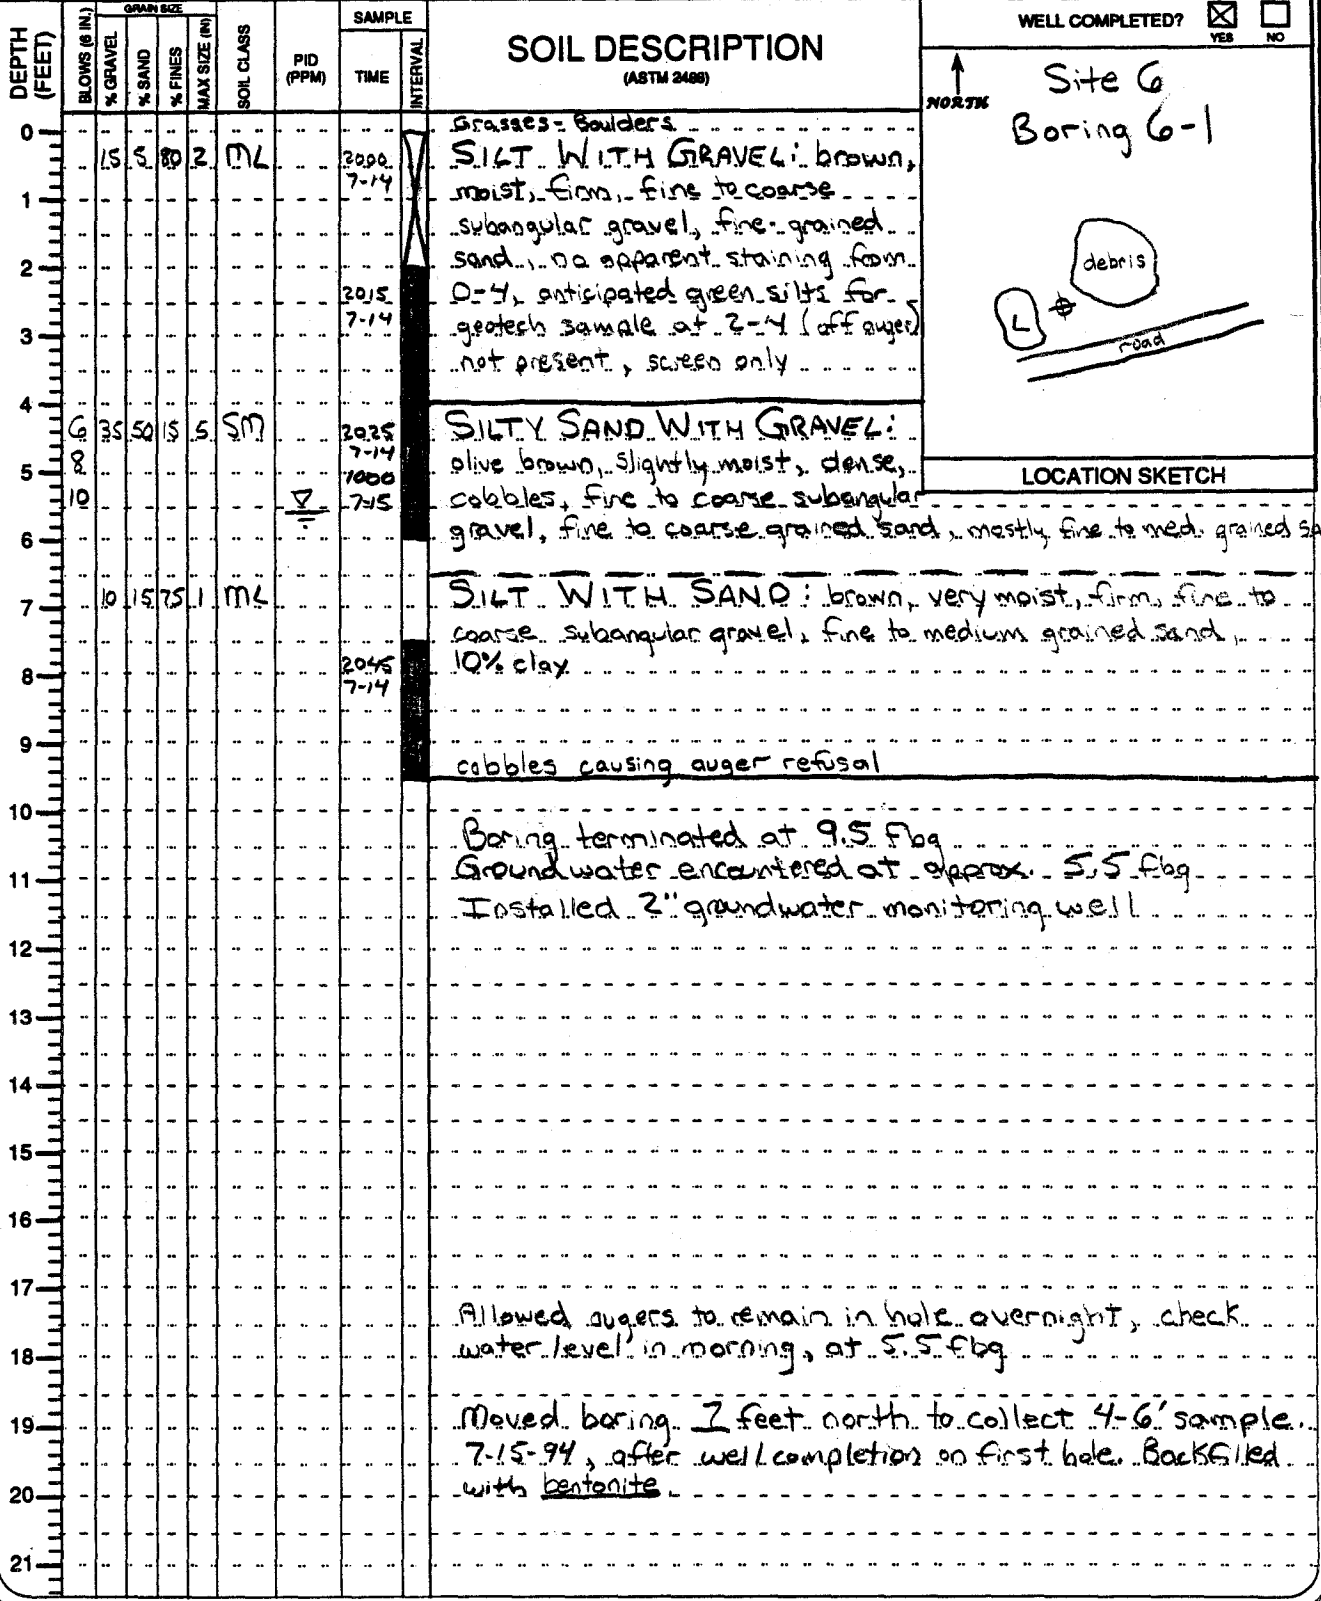 DEPTH (FEET)
BLOWS (6 IN.)
GRAIN SIZE
% GRAVEL
% SAND
% FINES
MAX SIZE (IN)
SOIL CLASS
PID (PPM)
SAMPLE
TIME
INTERVAL
SOIL DESCRIPTION
(ASTM 2488)
WELL COMPLETED?
YES
NO
NORTH
Site 6
Boring 6-1
debris
L
road
LOCATION SKETCH
0
Grasses - Boulders
15 5 80 2 ML 2000 SILT WITH GRAVEL: brown,
7-14 moist, firm, fine to coarse
1
subangular gravel, fine-grained
2
sand, no apparent staining from
2015 0-4, anticipated green silts for
7-14 geotech sample at 2-4 (off auger)
3
not present, screen only
4
6 35 50 15 5 SM 2025 SILTY SAND WITH GRAVEL:
7-14
8 olive brown, slightly moist, dense,
5
1000
10 7-15 cobbles, fine to coarse subangular
gravel, fine to coarse grained sand, mostly fine to med. grained sa
6
10 15 75 1 ML SILT WITH SAND: brown, very moist, firm, fine to
7
coarse subangular gravel, fine to medium grained sand,
2045 10% clay
8
7-14
9
cobbles causing auger refusal
10
Boring terminated at 9.5 fbg
Groundwater encountered at approx. 5.5 fbg
11
Installed 2" groundwater monitoring well
12
13
14
15
16
17
Allowed augers to remain in hole overnight, check
18
water level in morning, at 5.5 fbg
19
Moved boring 7 feet north to collect 4-6' sample.
7-15-94, after well completion on first hole. Backfilled
20
with bentonite.
21